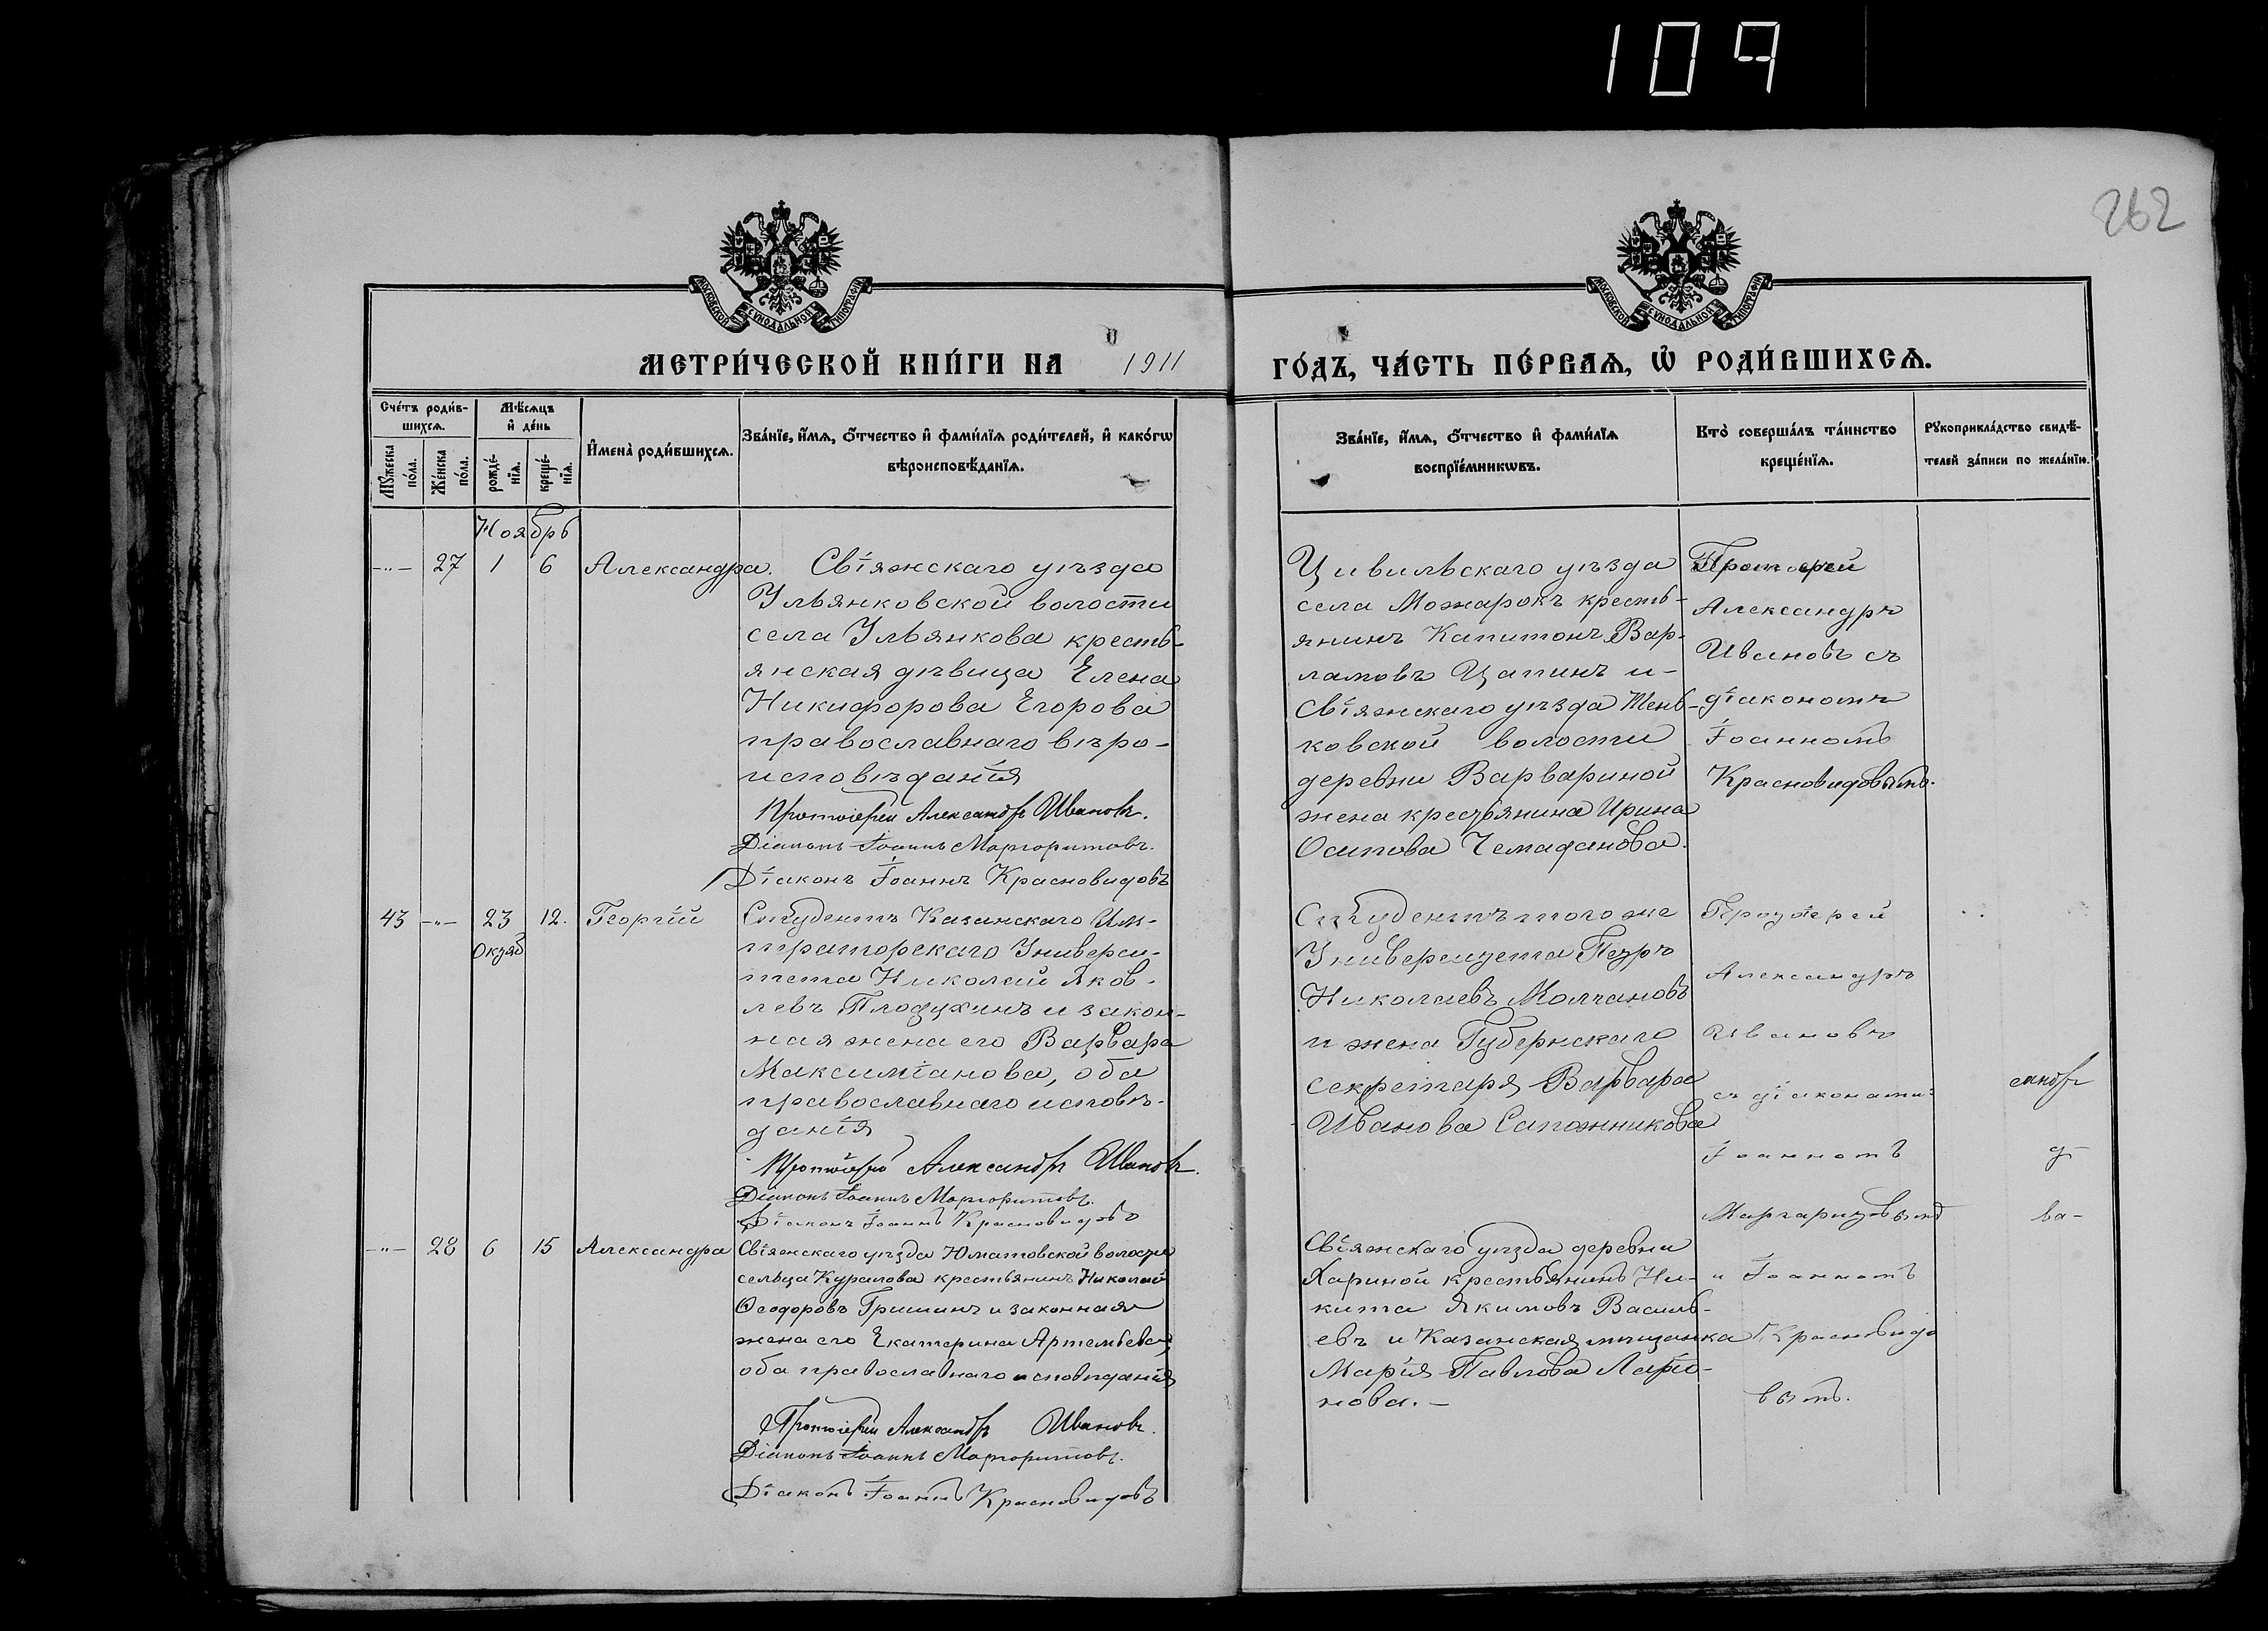 109
262
МОСКОВСКОЙ СУНОДАЛЬНОЙ ТИПОГРАФІИ
МОСКОВСКОЙ СУНОДАЛЬНОЙ ТИПОГРАФІИ
МЕТРИ́ЧЕСКОЙ КНИ́ГИ НА 1911
ГО́ДЪ, ЧА́СТЬ ПЕ́РВАѦ, Ѡ҆ РОДИ́ВШИХСѦ.
Сче́тъ роди́в-
шихсѧ.
Мꙋ́жеска по́ла.
Же́нска по́ла.
Мѣ́сѧцъ
и҆ де́нь
рожде́-
нїѧ.
креще́-
нїѧ.
И҆мена̀ роди́вшихсѧ.
Зва́нїе, и҆́мѧ, ѻ҆́тчество и҆ фами́лїѧ роди́телей, и҆ како́гѡ
вѣроисповѣ́данїѧ.
Зва́нїе, и҆́мѧ, ѻ҆́тчество и҆ фами́лїѧ
воспрїе́мникѡвъ.
Кто̀ соверша́лъ та́инство
креще́нїѧ.
Рꙋкоприкла́дство свидѣ́-
телей за́писи по жела́нїю.
Ноябрь
-„- 27 1 6 Александра.
Свіяжскаго уѣзда
Ульянковской волости
села Ульянкова кресть-
янская дѣвица Елена
Никифорова Егорова
православнаго вѣро-
исповѣданія
Протоіерей Александръ Ивановъ.
Діаконъ Іоаннъ Маргаритовъ.
Діаконъ Іоаннъ Красновидовъ
Цивильскаго уѣзда
села Можарокъ кресть-
янинъ Капитонъ Вар-
ламовъ Цапинъ и-
Свіяжскаго уѣзда Тень-
ковской волости
деревни Варвариной
жена крестьянина Ирина
Осипова Чемаданова.
Протоіерей
Александръ
Ивановъ съ
діакономъ
Іоанномъ
Красновидовымъ.
43 -„- 23 12. Георгій
Октяб
Студентъ Казанскаго Им-
ператорскаго Универси-
тета Николай Яков-
левъ Плодухинъ и закон-
ная жена его Варвара
Максиміанова, оба
православнаго исповѣ-
данія
Протоіерей Александръ Ивановъ.
Діаконъ Іоаннъ Маргаритовъ.
Діаконъ Іоаннъ Красновидовъ
Студентъ того же
Университета Петръ
Николаевъ Молчановъ
и жена Губернскаго
секретаря Варвара
Иванова Сапожникова
Протоіерей
Александръ
Ивановъ
съ діаконами:
Іоанномъ
Маргаритовымъ
и Іоанномъ
Красновидо
вымъ.
-„- 28 6 15 Александра
Свіяжскаго уѣзда Юматовской волости
сельца Куралова крестьянинъ Николай
Ѳеодоровъ Гришинъ и законная
жена его Екатерина Артемьева,
оба православнаго исповѣданія
Протоіерей Александръ Ивановъ.
Діаконъ Іоаннъ Маргаритовъ.
Діаконъ Іоаннъ Красновидовъ
Свіяжскаго уѣзда деревни
Хариной крестьянинъ Ни-
кита Якимовъ Василь-
евъ и Казанская мѣщанка
Марія Павлова Ларіо-
нова.-